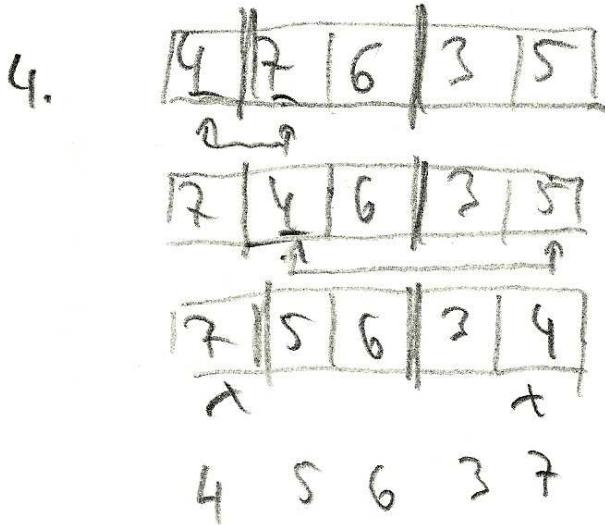 4.
4 7 6 3 5
7 4 6 3 5
7 5 6 3 4
x x
4 5 6 3 7